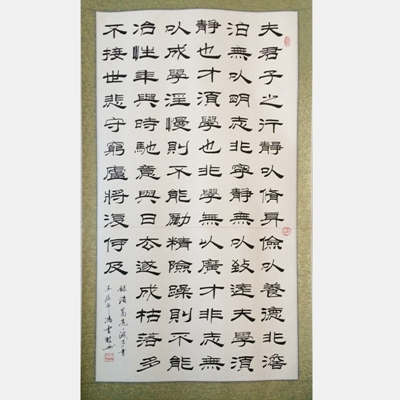 夫君子之行靜以脩身儉以養德非澹
泊無以明志非寧靜無以致遠夫學須
靜也才須學也非學無以廣才非志無
以成學淫慢則不能勵精險躁則不能
冶性年與時馳意與日去遂成枯落多
不接世悲守窮廬將復何及
錄諸葛亮誡子書
壬辰年